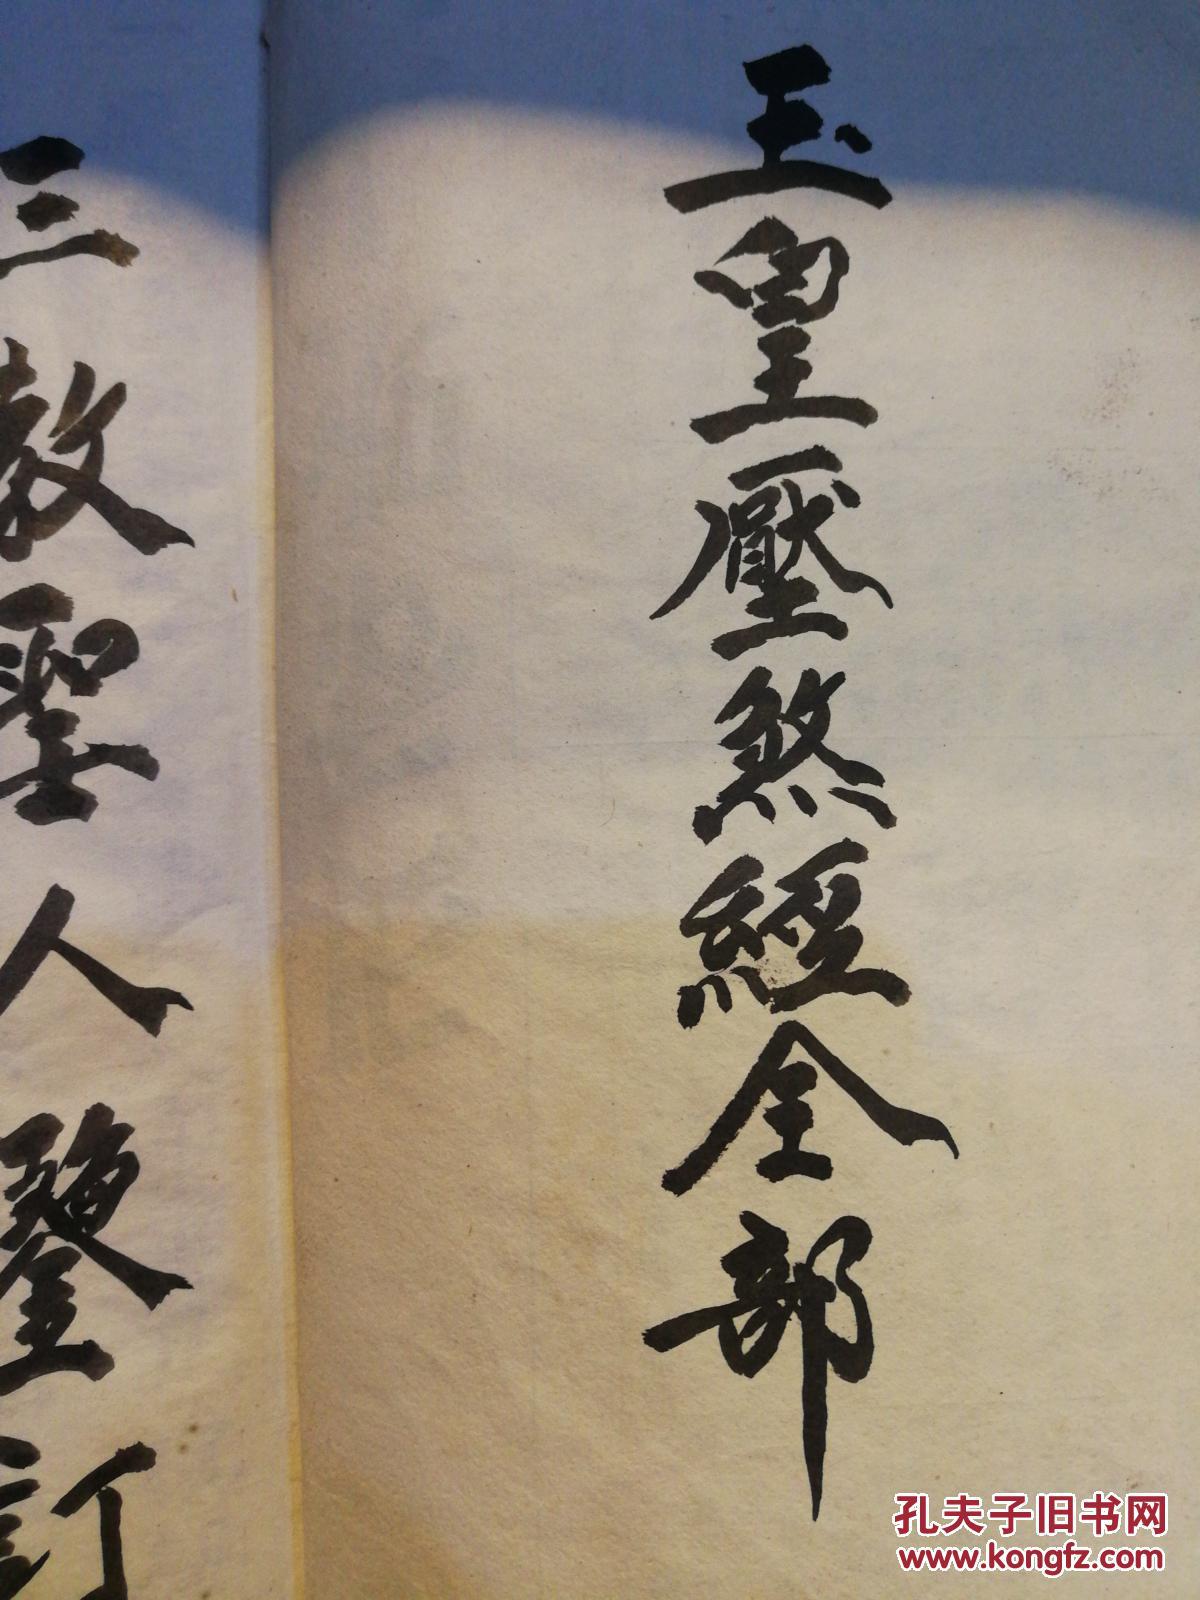 玉皇壓煞經全部
三教聖人鑒訂
孔夫子旧书网
www.kongfz.com